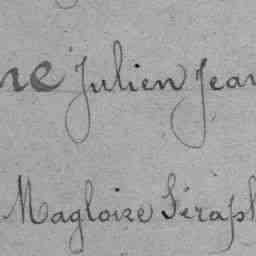 ne Julien Jean
Magloire Séraph